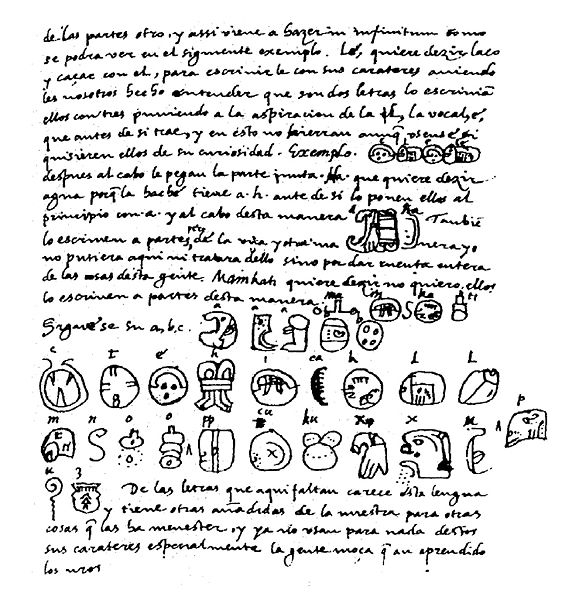 de las partes otro, y assi viene a hazer in infinitum como
se podra ver en el siguiente exemplo. Lé, quiere dezir laço
y caçar con el, para escrivirle con sus carateres aviendo
les nosotros hecho entender que son dos letras lo escrivian
ellos con tres puniendo a la aspiracion de la l, la vocal, é,
que antes de si trae, y en esto no hierran aunq̃ usense si
quisieren ellos de su curiosidad. Exemplo.
despues al cabo le pegan la parte junta. Ha. que quiere dezir
agua porq̃ la haché tiene a. h. ante de si lo ponen ellos al
principio con a. y al cabo desta manera a ha Tambiē
lo escriven a partes, pero de la una y otra ma nera yo
no pusiera aqui ni tratara dello sino por dar cuenta entera
de las cosas desta gente. Mainkati quiere dezir no quiero, ellos
lo escriven a partes desta manera: ma i n ka ti
Siguese su a, b, c. a a a b b
c t é h i ca k l l
m n o o pp cu ku x x u p
u z De las letras que aqui faltan carece esta lengua
y tiene otras añadidas de la nuestra para otras
cosas q̃ las ha menester, y ya no usan para nada destos
sus carateres especialmente la gente moça q̃ an aprendido
los nros